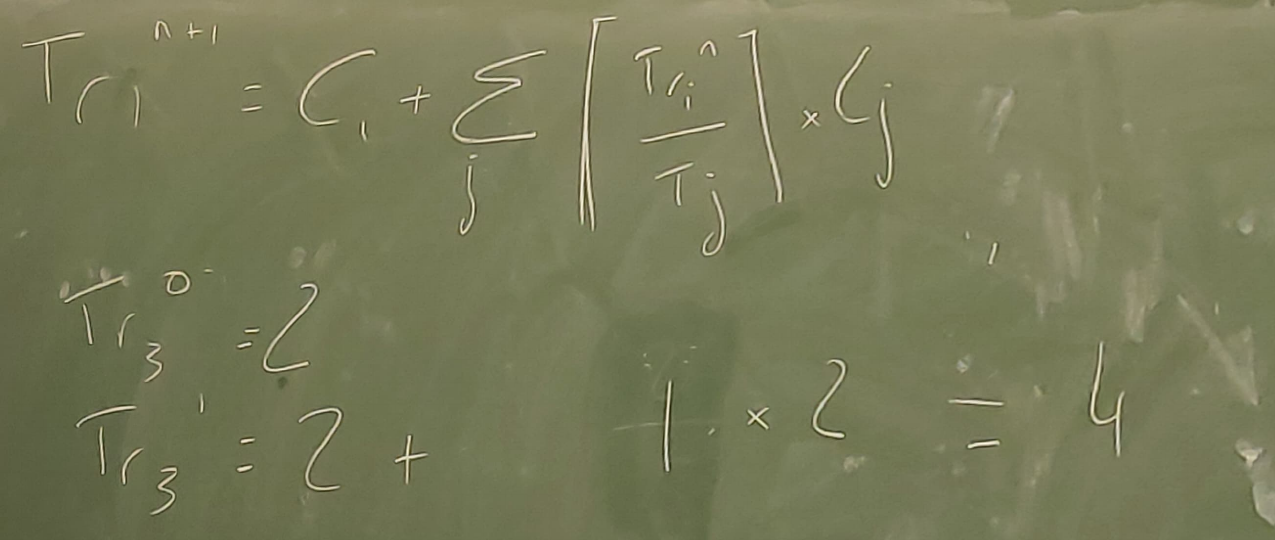 Tr₁ⁿ⁺¹ = C₁ + Σⱼ ⌈Trᵢⁿ / Tⱼ⌉ × Cⱼ
Tr₃⁰ = 2
Tr₃¹ = 2 + 1 × 2 = 4